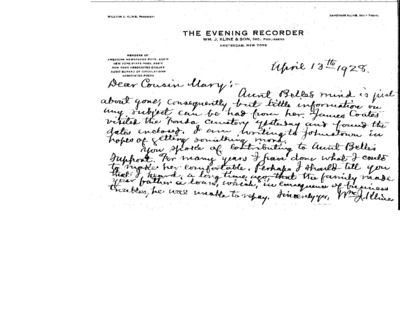 WILLIAM J. KLINE, PRESIDENT
GARDINER KLINE, VICE PRESIDENT
THE EVENING RECORDER
WM. J. KLINE & SON, INC. PUBLISHERS
AMSTERDAM, NEW YORK
MEMBERS OF
AMERICAN NEWSPAPER PUB. ASS'N
NEW YORK STATE PUB. ASS'N
NEW YORK ASSOCIATED DAILIES
AUDIT BUREAU OF CIRCULATIONS
ASSOCIATED PRESS
April 13th 1928.
Dear Cousin Mary:-
Aunt Belle's mind is just
about gone, consequently but little information on
any subject can be had from her. James Coates
visited the Fonda cemetery yesterday and found the
dates inclosed. I am writing to Johnstown in
hope of getting something more.
You speak of contributing to Aunt Belle's
support. For many years I have done what I could
to make her comfortable. Perhaps I should tell you
that I heard, a long time ago that the family made
your father a loan, which, in consequence of business
troubles, he was unable to repay. Sincerely yrs, Wm J. Kline